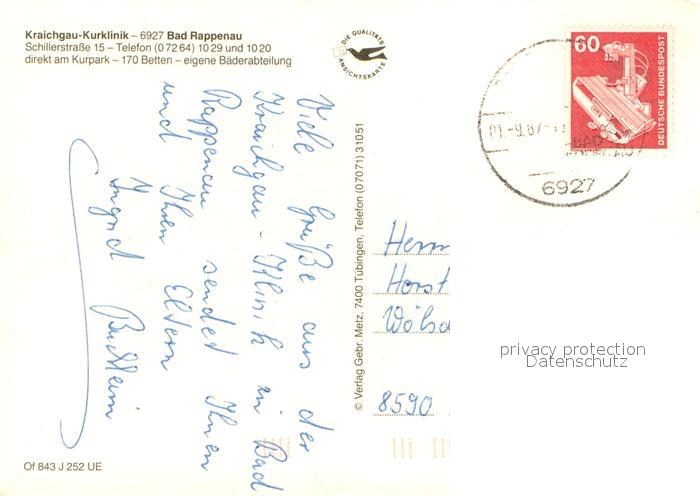 Kraichgau-Kurklinik – 6927 Bad Rappenau
Schillerstraße 15 – Telefon (0 72 64) 10 29 und 10 20
direkt am Kurpark – 170 Betten – eigene Bäderabteilung
DIE QUALITÄTS
ANSICHTSKARTE
60
DEUTSCHE BUNDESPOST
-9.87-
BAD
6927
Viele Grüße aus der
Kraichgau-Klinik in Bad
Rappenau sendet Ihnen
und Ihren Eltern
Ingrid
© Verlag Gebr. Metz, 7400 Tübingen, Telefon (07071) 31051
Herrn
Horst
8590
privacy protection
Datenschutz
Of 843 J 252 UE